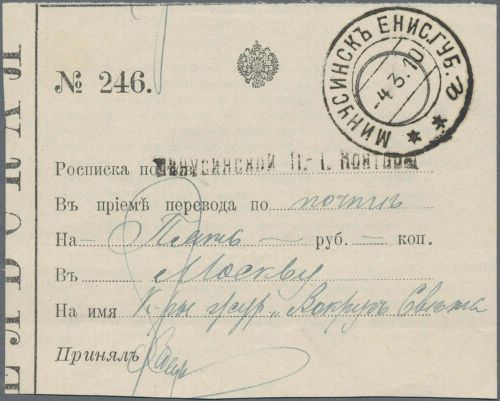 МИНУСИНСКЪ ЕНИС.ГУБ.
-4.3.10
№ 246.
Росписка Минусинской П.-Т. Конторы
Въ пріемѣ перевода по почтѣ
На Пять руб. — коп.
Въ Москву
На имя К-ры жур. „Вокругъ Свѣта
Принялъ